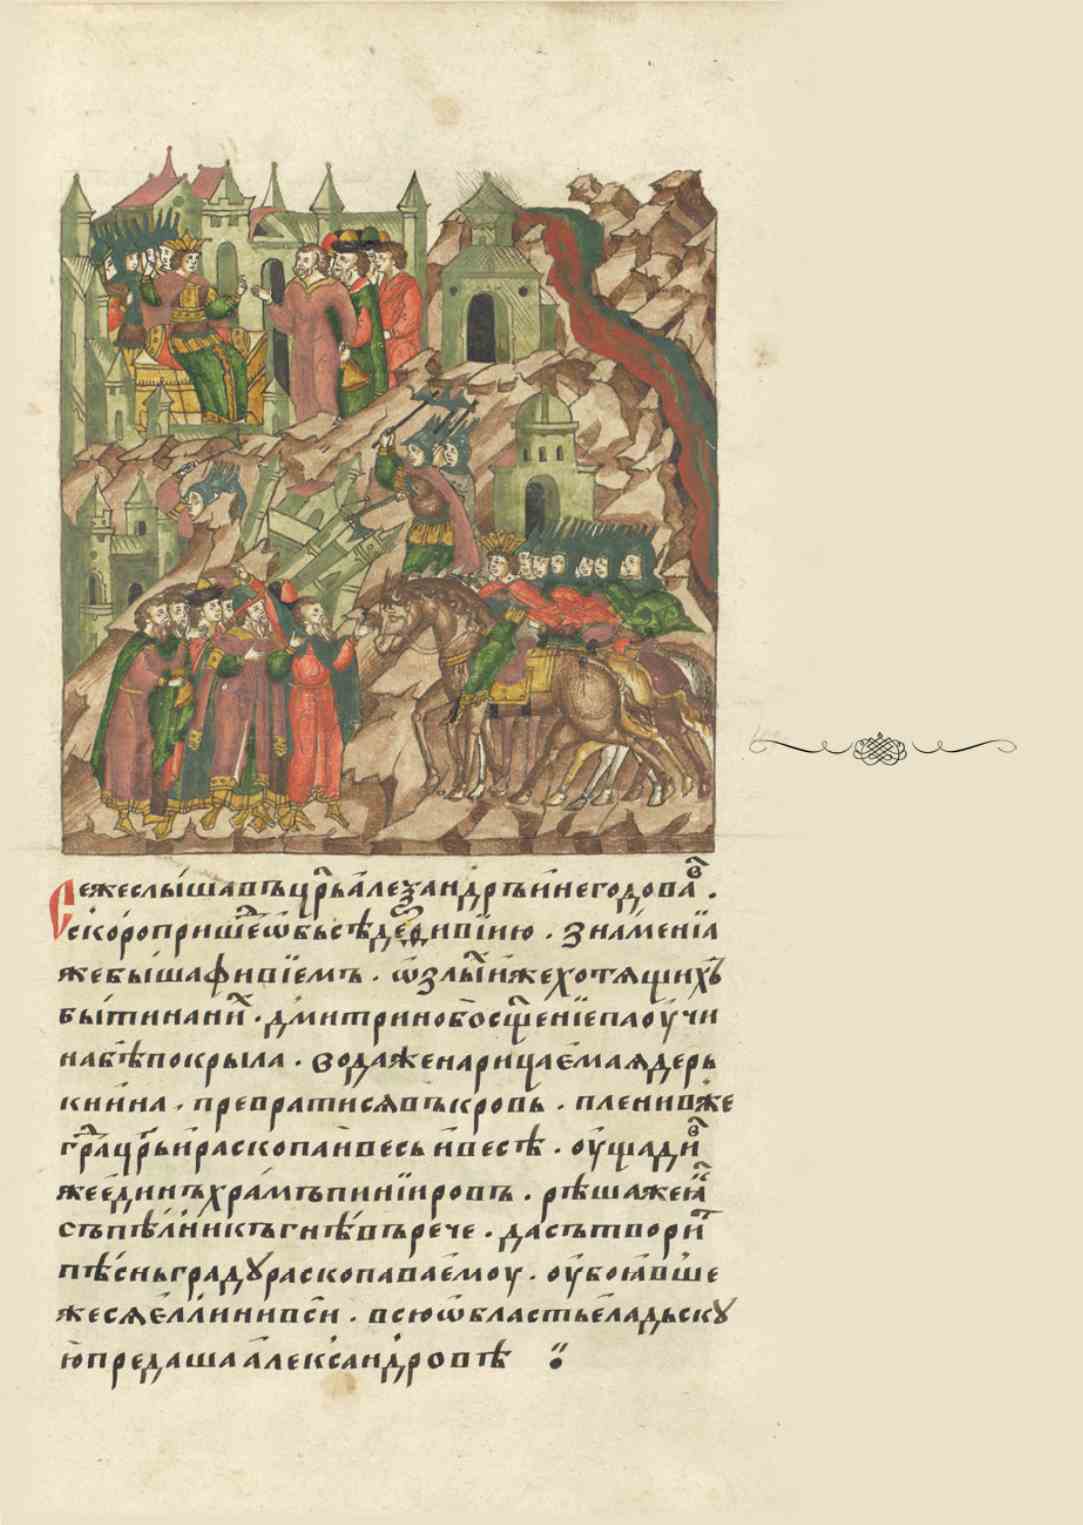 Се же слы́шавъ цр҃ь а҆леѯандръ и҆ негодова́в .
ско́ро прише́д ѡ҆бьсѣде ѳи́вїю . зна́менїа
же бы́ша ѳиви́емъ . ѿ злы́х и҆же хотѧ́щихъ
бы́ти на ни́х . дми́трино бо ѡсщ҃е́нїе паоучи
на́ бѣ покры́ла . вода́ же нарица́е́маѧ дерь
ки́ина . преврати́сѧ въ кро́вь . плени́в же
гра́д цр҃ь и҆ раскопа́ и҆ ве́сь и҆ вe҆сѣ . оу҆щади́в
же е҆ди́нъ хра́мъ пинїировъ . рѣша́ же и҆́м
съ пѣ́лникъ гнѣ́въ рече . да сътвори́т
пѣ́снь гра́дꙋ раскопава́е́моу . оу҆боѧ́вше
же сѧ е҆́ллини вси́ . всю ѡ҆́бласть е҆ла́дьскꙋ
ю҆ преда́ша а҆ле́ксандровѣ